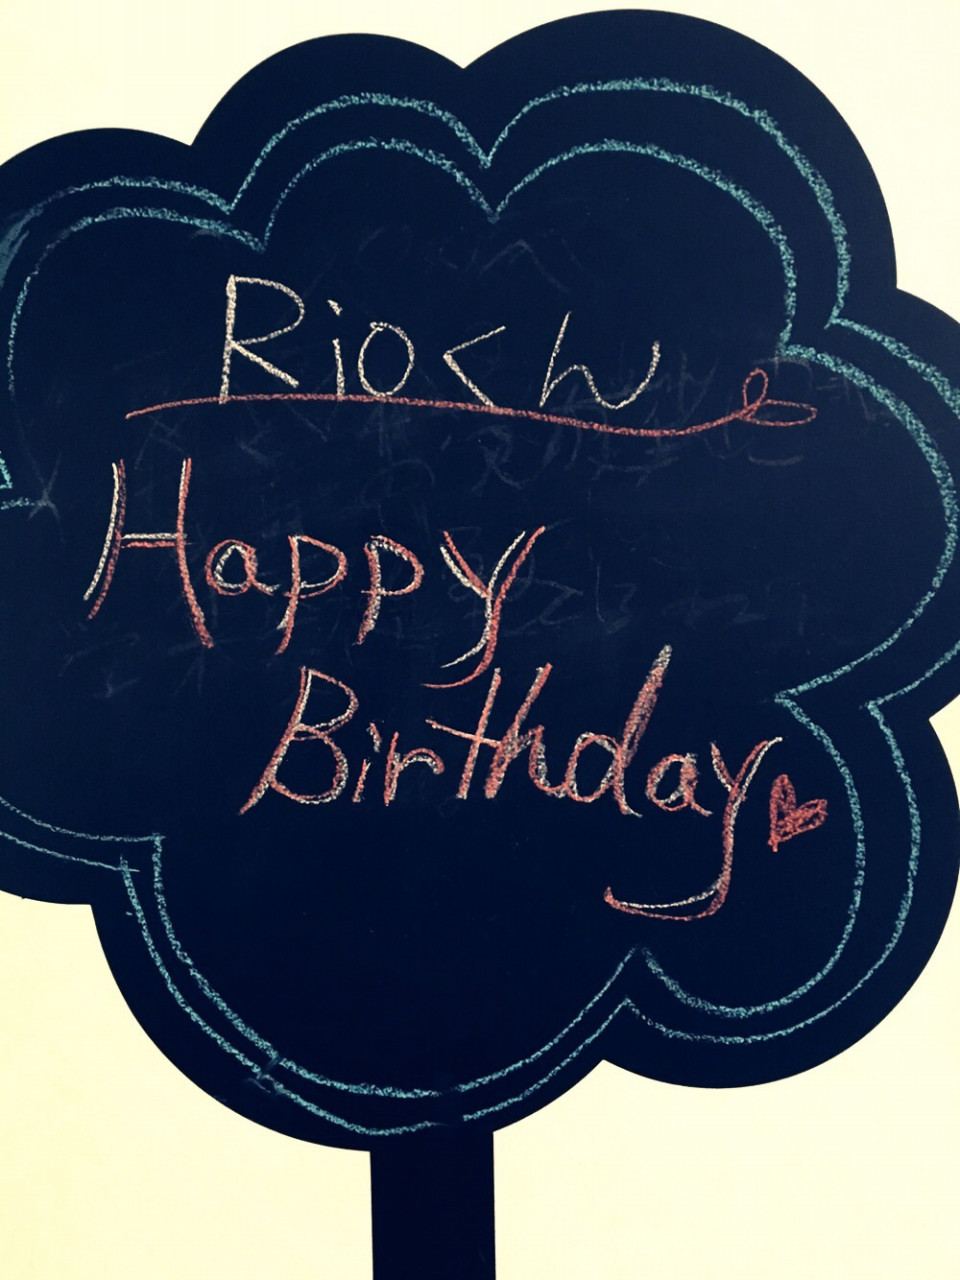 Rioくん
Happy
Birthday